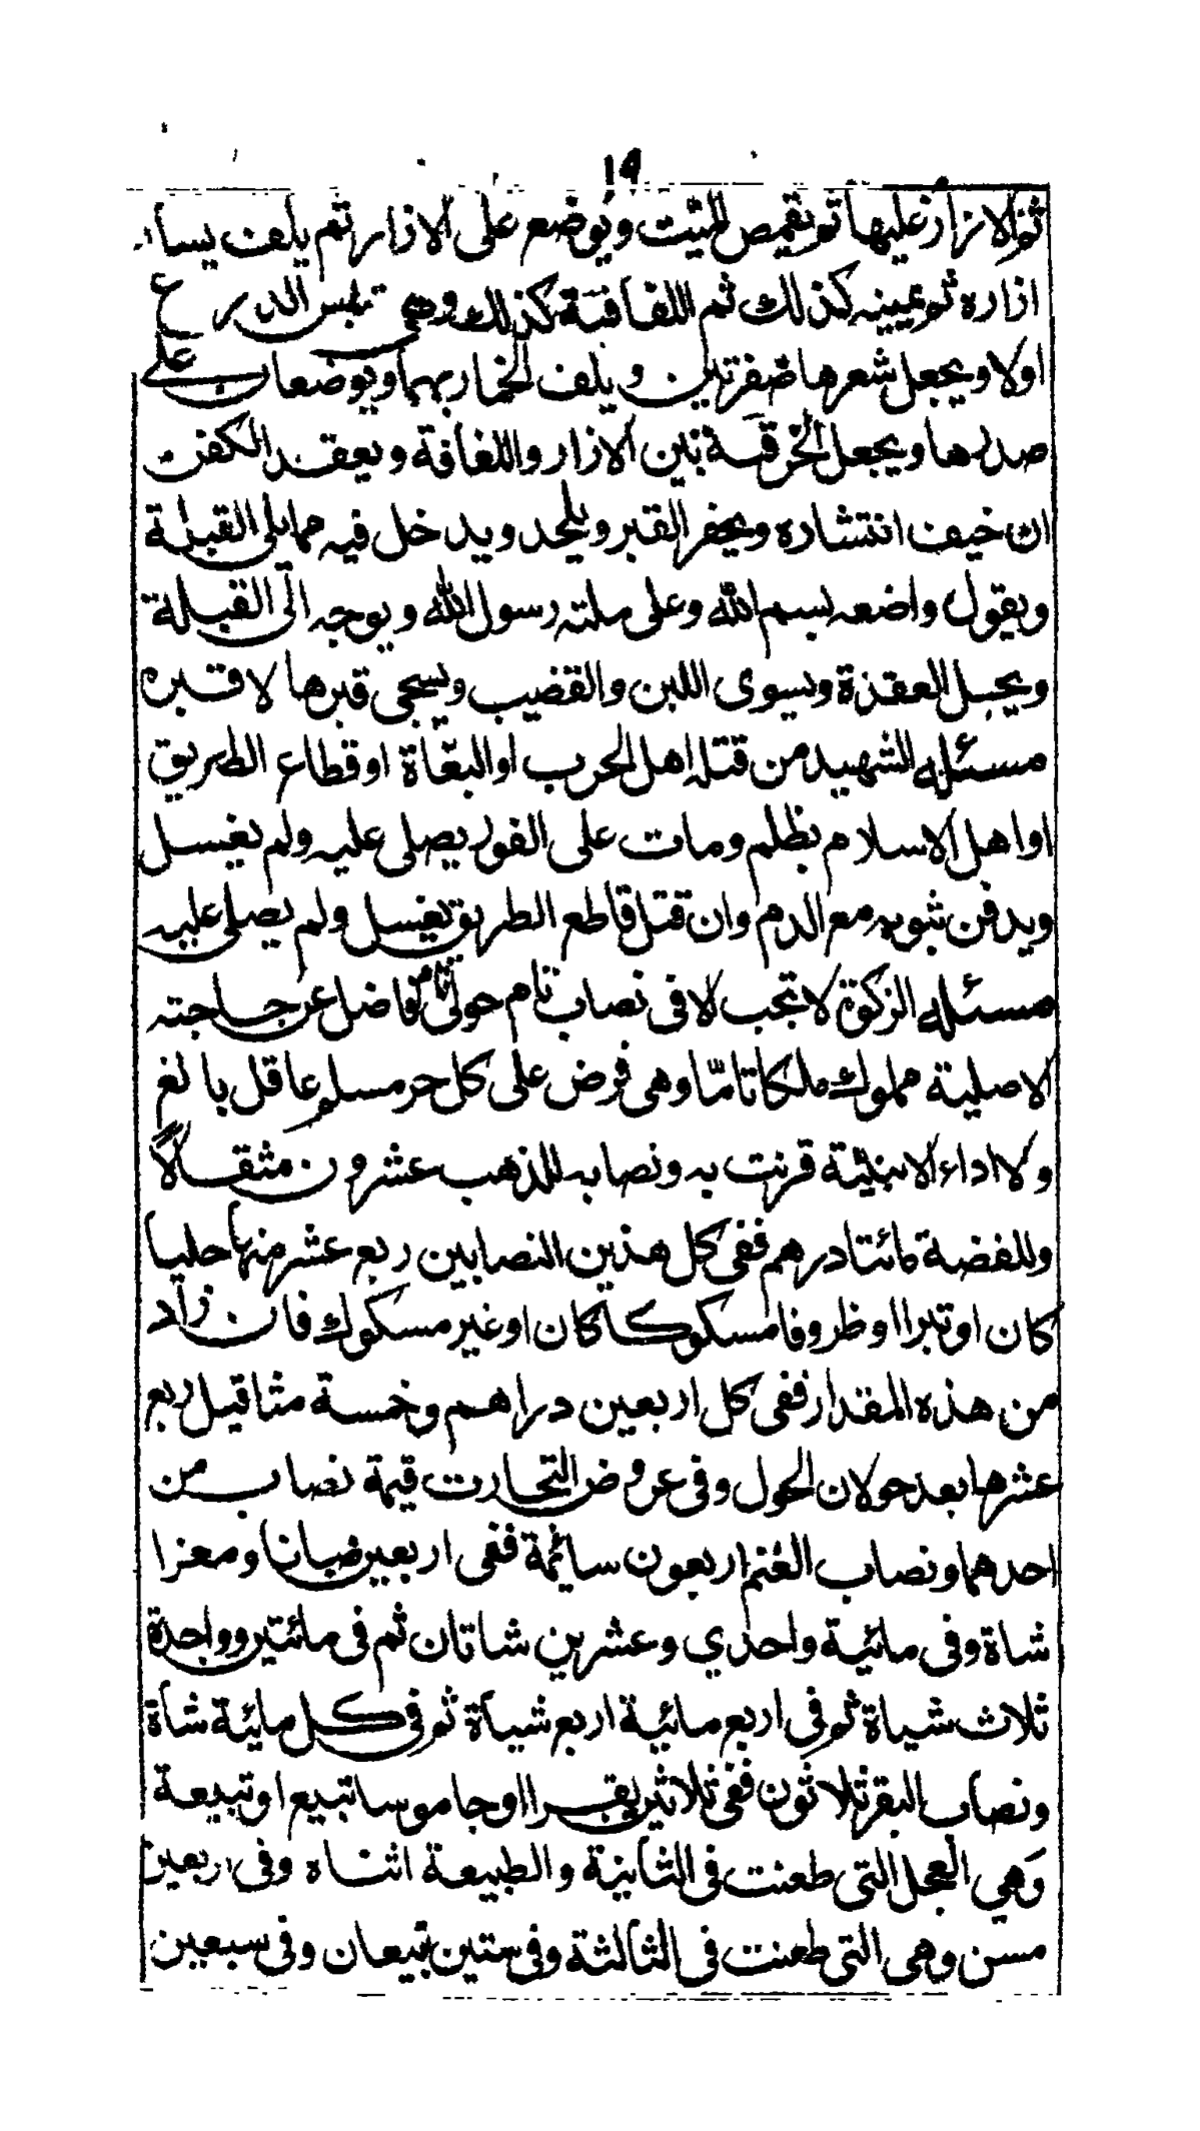 ١٩
ثم الازار عليها ثم يقمص الميت ويوضع على الازار ثم يلف يسار
ازاره ثم يمينه كذلك ثم اللفافة كذلك وهي تلبس الدرع
اولا ويجعل شعرها ضفرتين ويلف الخمار بهما ويوضعان على
صدرها ويجعل الخرقة بين الازار واللفافة ويعقد الكفن
ان خيف انتشاره ويحفر القبر ويلحد ويدخل فيه مما يلي القبلة
ويقول واضعه بسم الله وعلى ملته رسول الله ويوجه الى القبلة
ويحل العقدة ويسوى اللبن والقضيب ويسجى قبرها لا قبره
مسئله الشهيد من قتله اهل الحرب او البغاة او قطاع الطريق
او اهل الاسلام بظلم ومات على الفور يصلى عليه ولم يغسل
ويدفن بثوبه مع الدم وان قتل قاطع الطريق يغسل ولم يصلى عليه
مسئله الزكوة لا تجب الا فى نصاب تام حولى نام فاضل عن حاجته
الاصلية مملوك ملكا تامّا وهى فرض على كل حر مسلم عاقل بالغ
ولا اداء الا بنيئة قرنت به ونصابه للذهب عشرون مثقالًا
وللفضة مائتا درهم ففى كل هذين النصابين ربع عشر منها حليا
كان او تبرا او ظروفا مسكوكا كان او غير مسكوك فان زاد
من هذه المقدار ففى كل اربعين دراهم وخمسة مثاقيل ربع
عشرها بعد حولان الحول وفى عروض التجارت قيمة نصاب من
احدهما ونصاب الغنم اربعون سائمة ففى اربعين ضانا ومعزا
شاة وفى مائية واحدي وعشرين شاتان ثم فى مائتين وواحدة
ثلاث شياة ثم فى اربع مائية اربع شياة ثم فى كل مائة شاة
ونصاب البقر ثلاثون ففى ثلاثين بقرا او جاموسا تبيع او تبيعة
وَهي العجل التى طعنت فى الثانية والطبيعة انثاه وفى اربعين
مسن وهى التى طعنت فى الثالثة وفى ستين تبيعان وفى سبعين